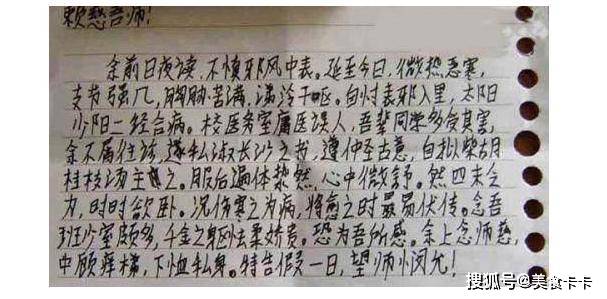 慈吾师!
余前日夜读,不慎邪风中表。延至今日,微热恶寒,
支节强几,胸胁苦满,涕泠干呕。自忖表邪入里,太阳
少阳二经合病。校医务室庸医误人,吾辈同学多受其害,
余不屑往诊,遂私淑长沙之书,遵仲圣古意,自拟柴胡
桂枝汤主之。服后遍体漐然,心中微舒。然四末乏
力,时时欲卧。况伤寒之为病,将愈之时最易伏传。念吾
班少室颇多,千金之身柔娇贵。恐为吾所感。余上念师慈,
中顾痒梯,下恤私身。特告假一日,望师悯允!
搜狐号@美食卡卡